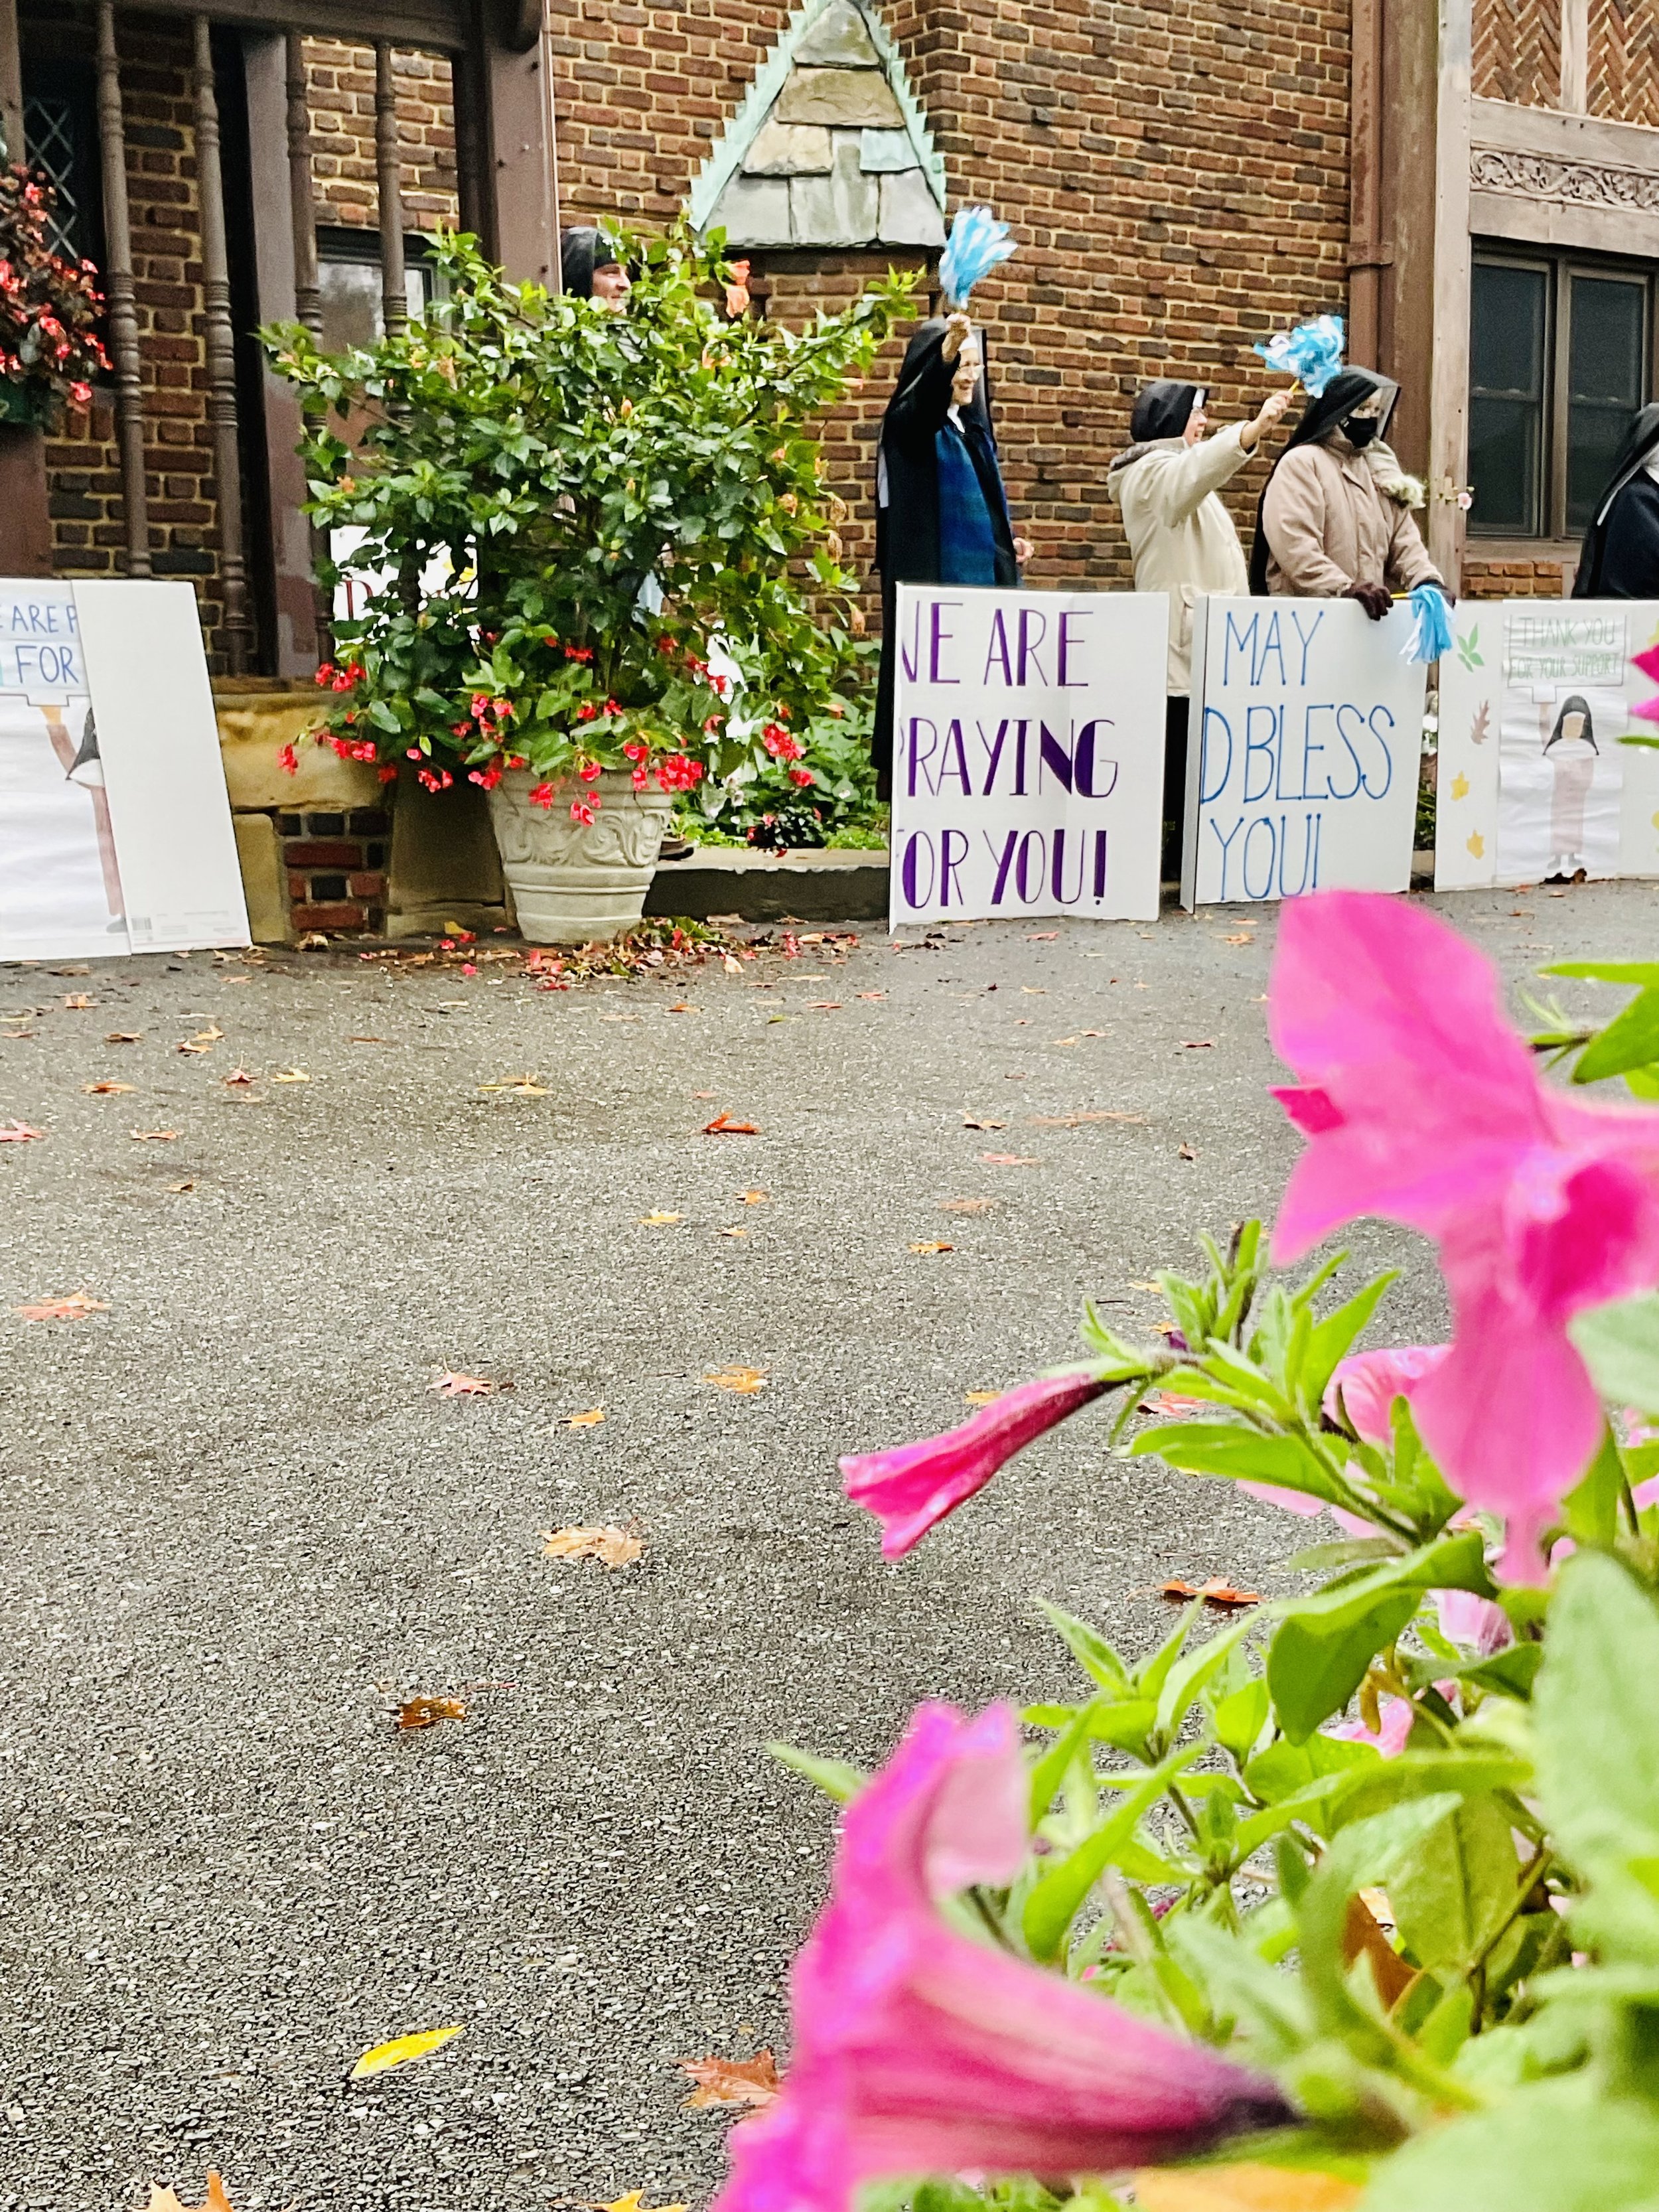 ARE P
FOR
WE ARE
PRAYING
FOR YOU!
MAY
D BLESS
YOU!
THANK YOU
FOR YOUR SUPPORT